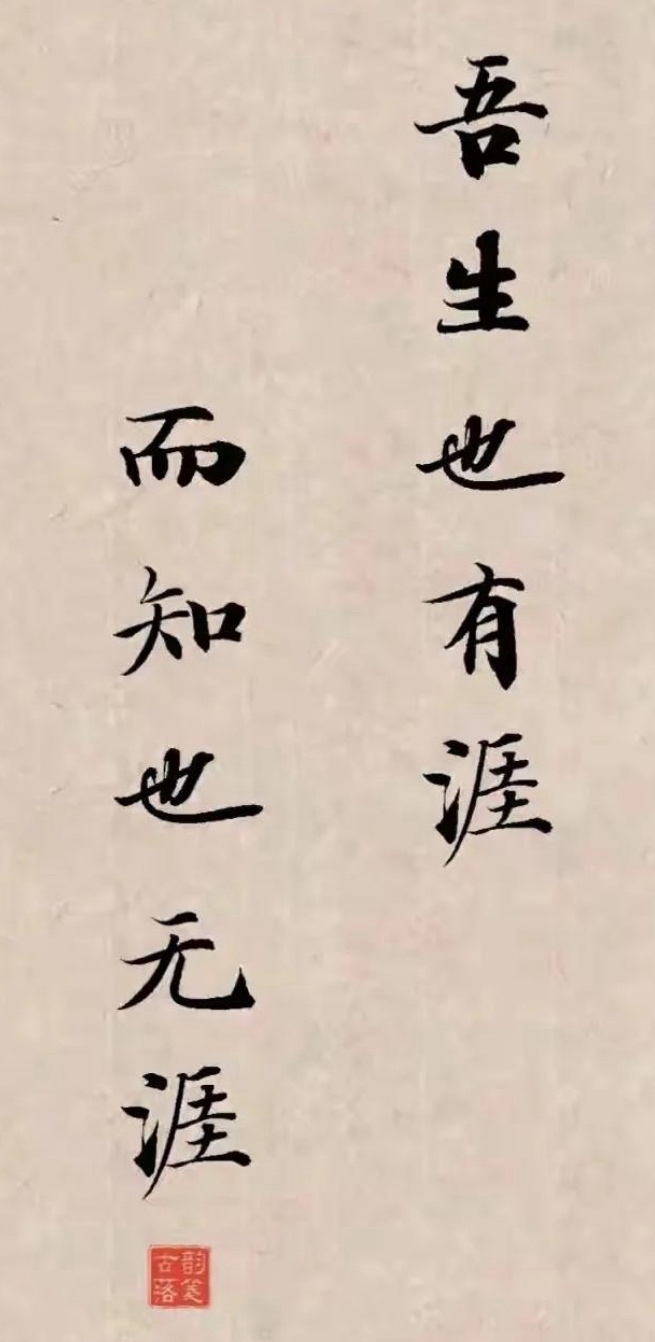 吾生也有涯
而知也无涯
古韵
落笺